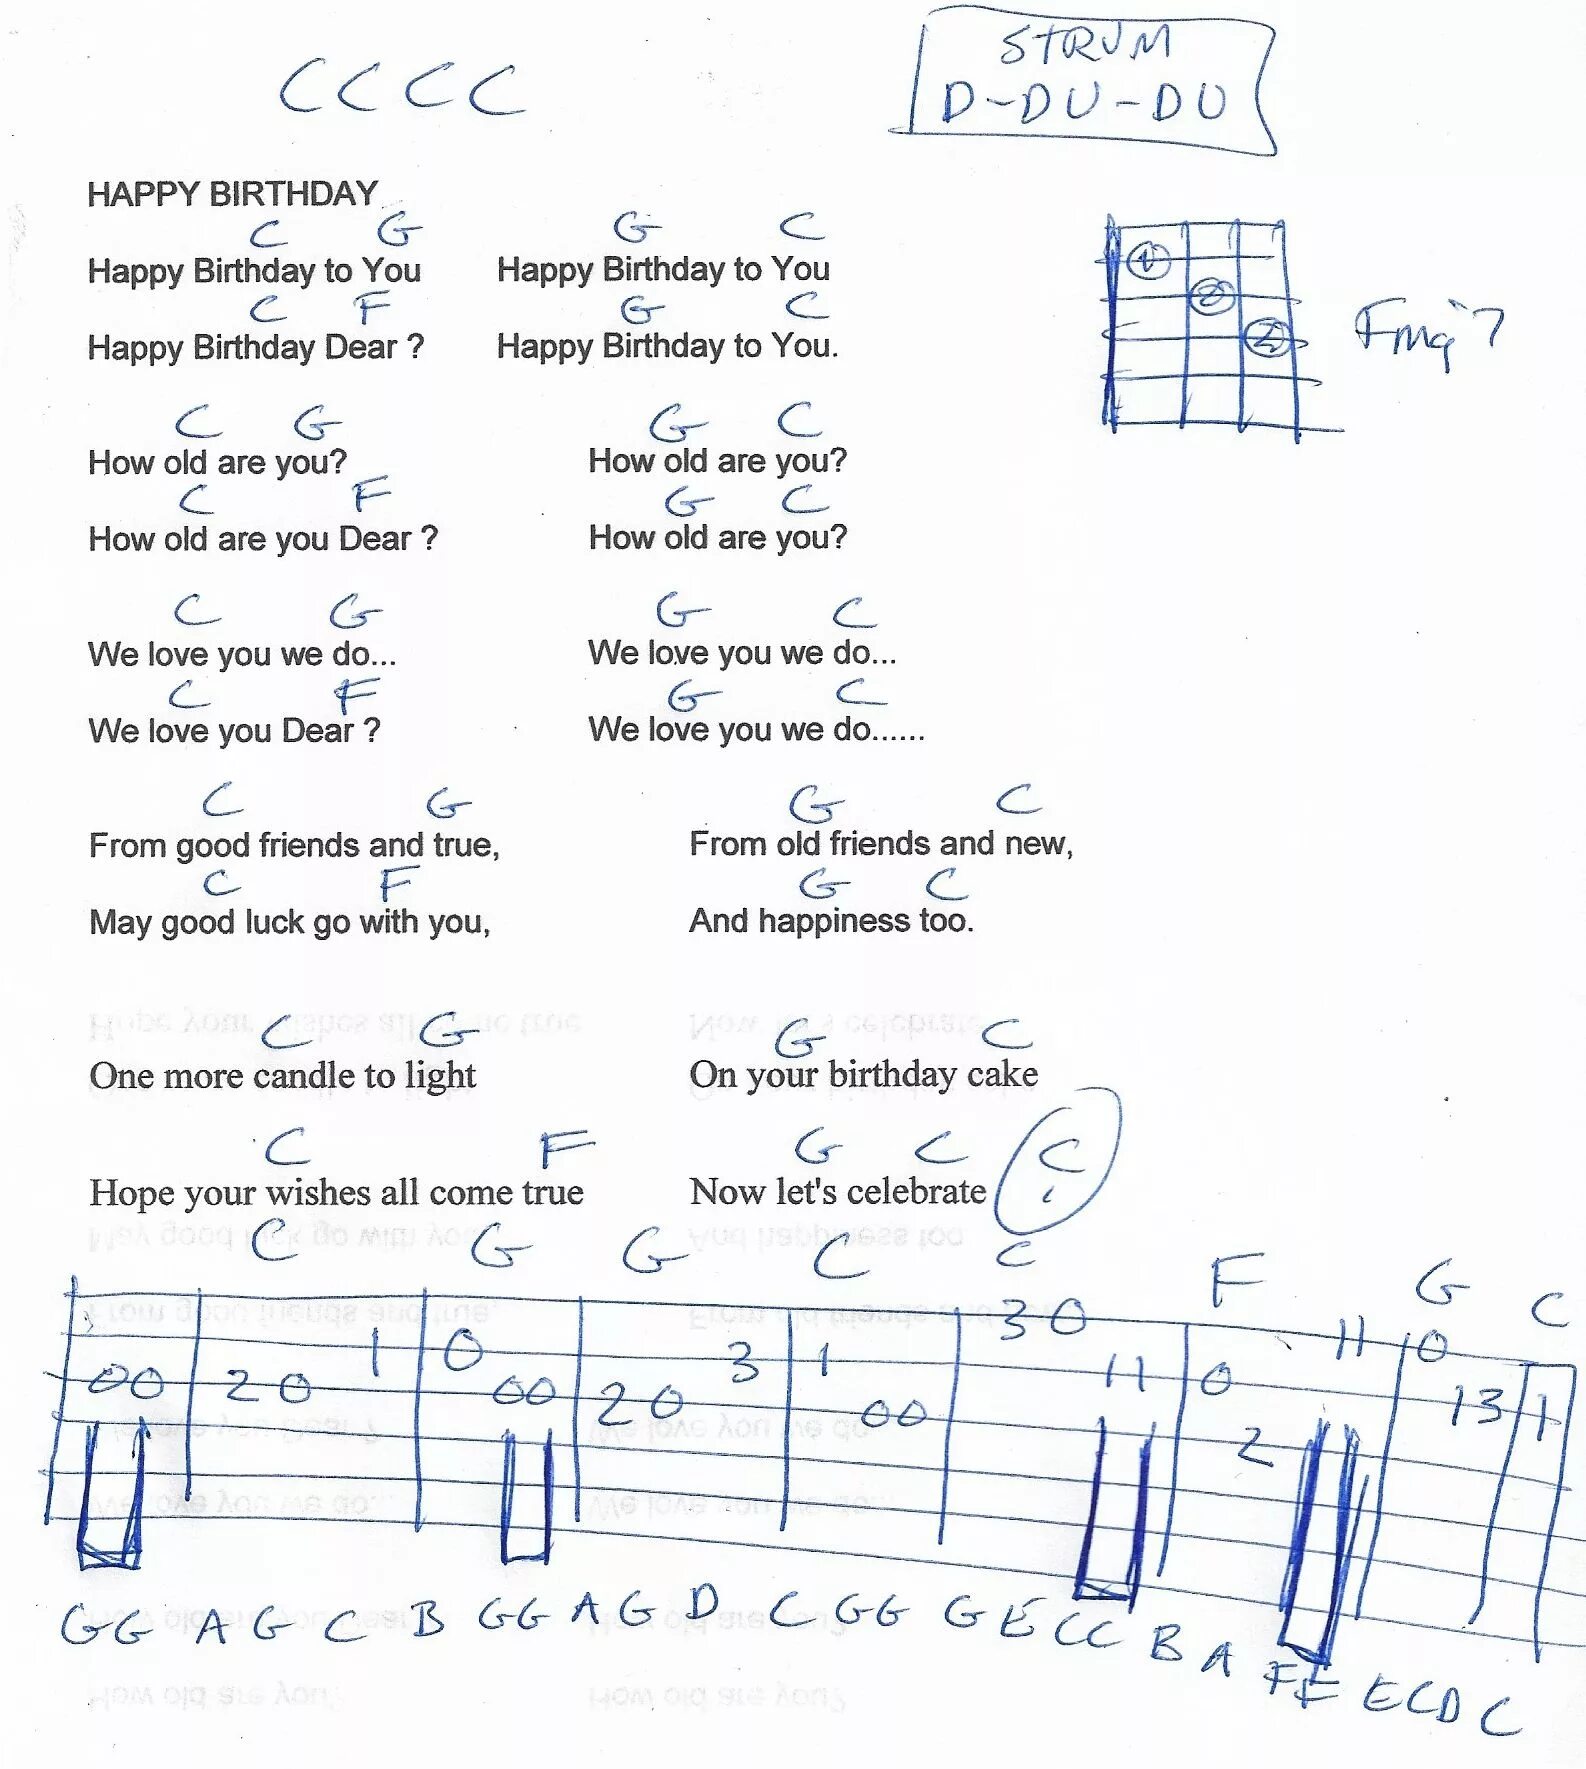 C C C C
STRUM
D-DU-DU
HAPPY BIRTHDAY
C G G C
Happy Birthday to You Happy Birthday to You
C F G C
Happy Birthday Dear ? Happy Birthday to You.
1
2
Fmaj7
C G G C
How old are you? How old are you?
C F G C
How old are you Dear ? How old are you?
C G G C
We love you we do... We love you we do...
C F G C
We love you Dear ? We love you we do......
C G G C
From good friends and true, From old friends and new,
C F G C
May good luck go with you, And happiness too.
C G G C
One more candle to light On your birthday cake
C F G C C
Hope your wishes all come true Now let's celebrate
C G G C C F G C
00 20 1 0 00 20 3 1 00 30 11 0 2 11 0 13 1
GG A G C B GG A G D C GG G E CC B A FF E C D C